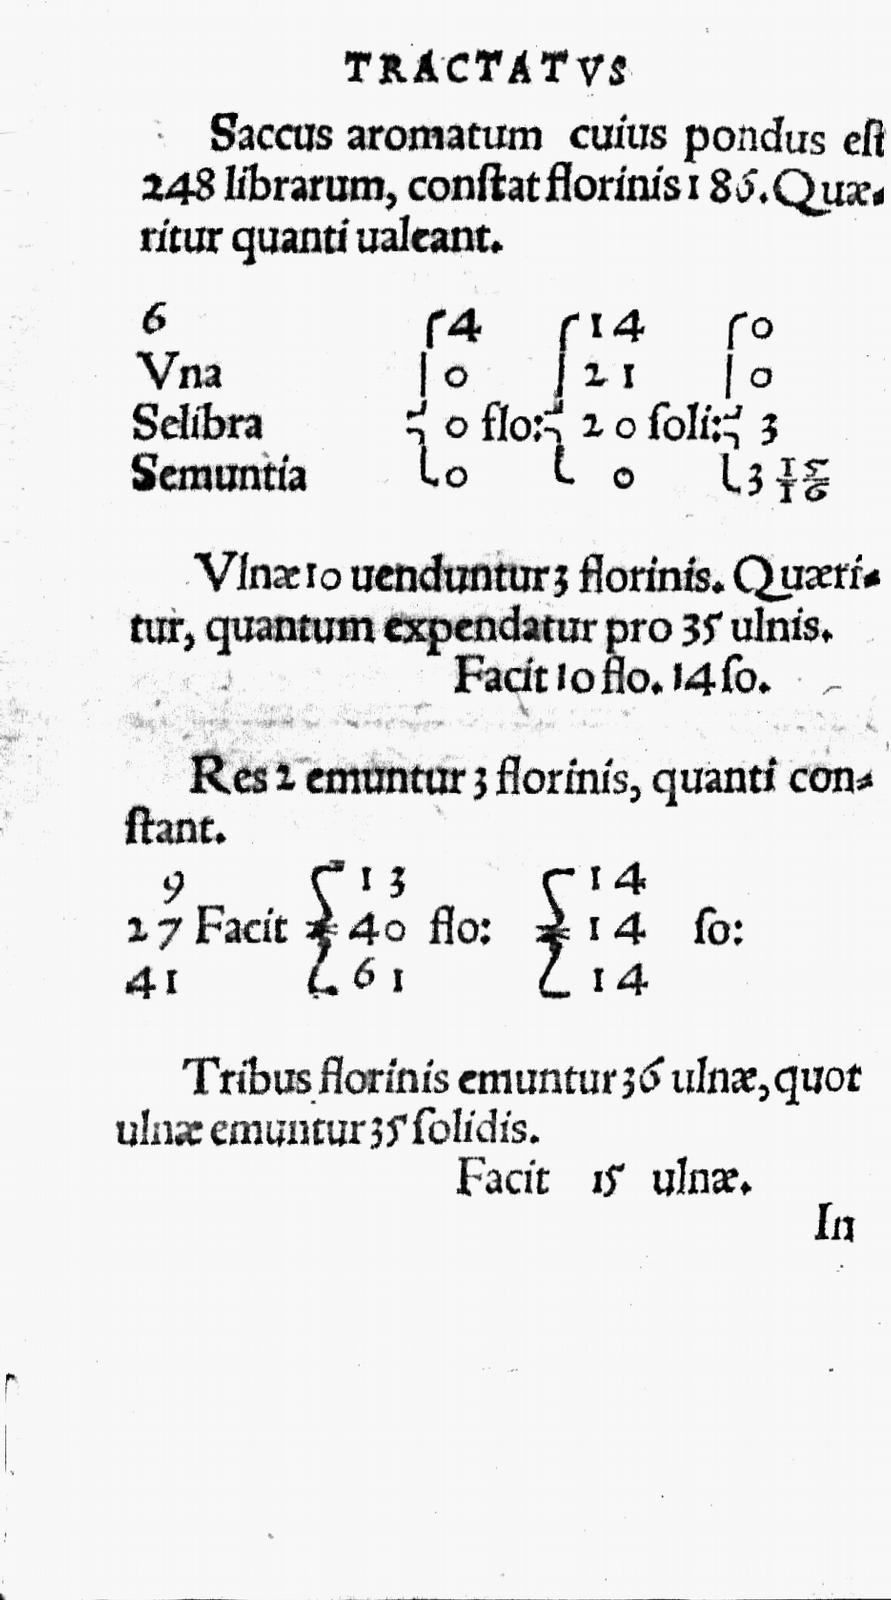 TRACTATVS
Saccus aromatum cuius pondus eſt
248 librarum, conſtat florinis 186. Quæ-
ritur quanti ualeant.
6 4 14 0
Vna 0 21 0
Selibra 0 flo: 20 ſoli: 3
Semuntia 0 0 3 1/1 5/6
Vlnæ 10 uenduntur 3 florinis. Quæri-
tur, quantum expendatur pro 35 ulnis.
Facit 10 flo. 14 ſo.
Res 2 emuntur 3 florinis, quanti con-
ſtant.
9 13 14
27 Facit 40 flo: 14 ſo:
41 61 14
Tribus florinis emuntur 36 ulnæ, quot
ulnæ emuntur 35 ſolidis.
Facit 15 ulnæ.
In